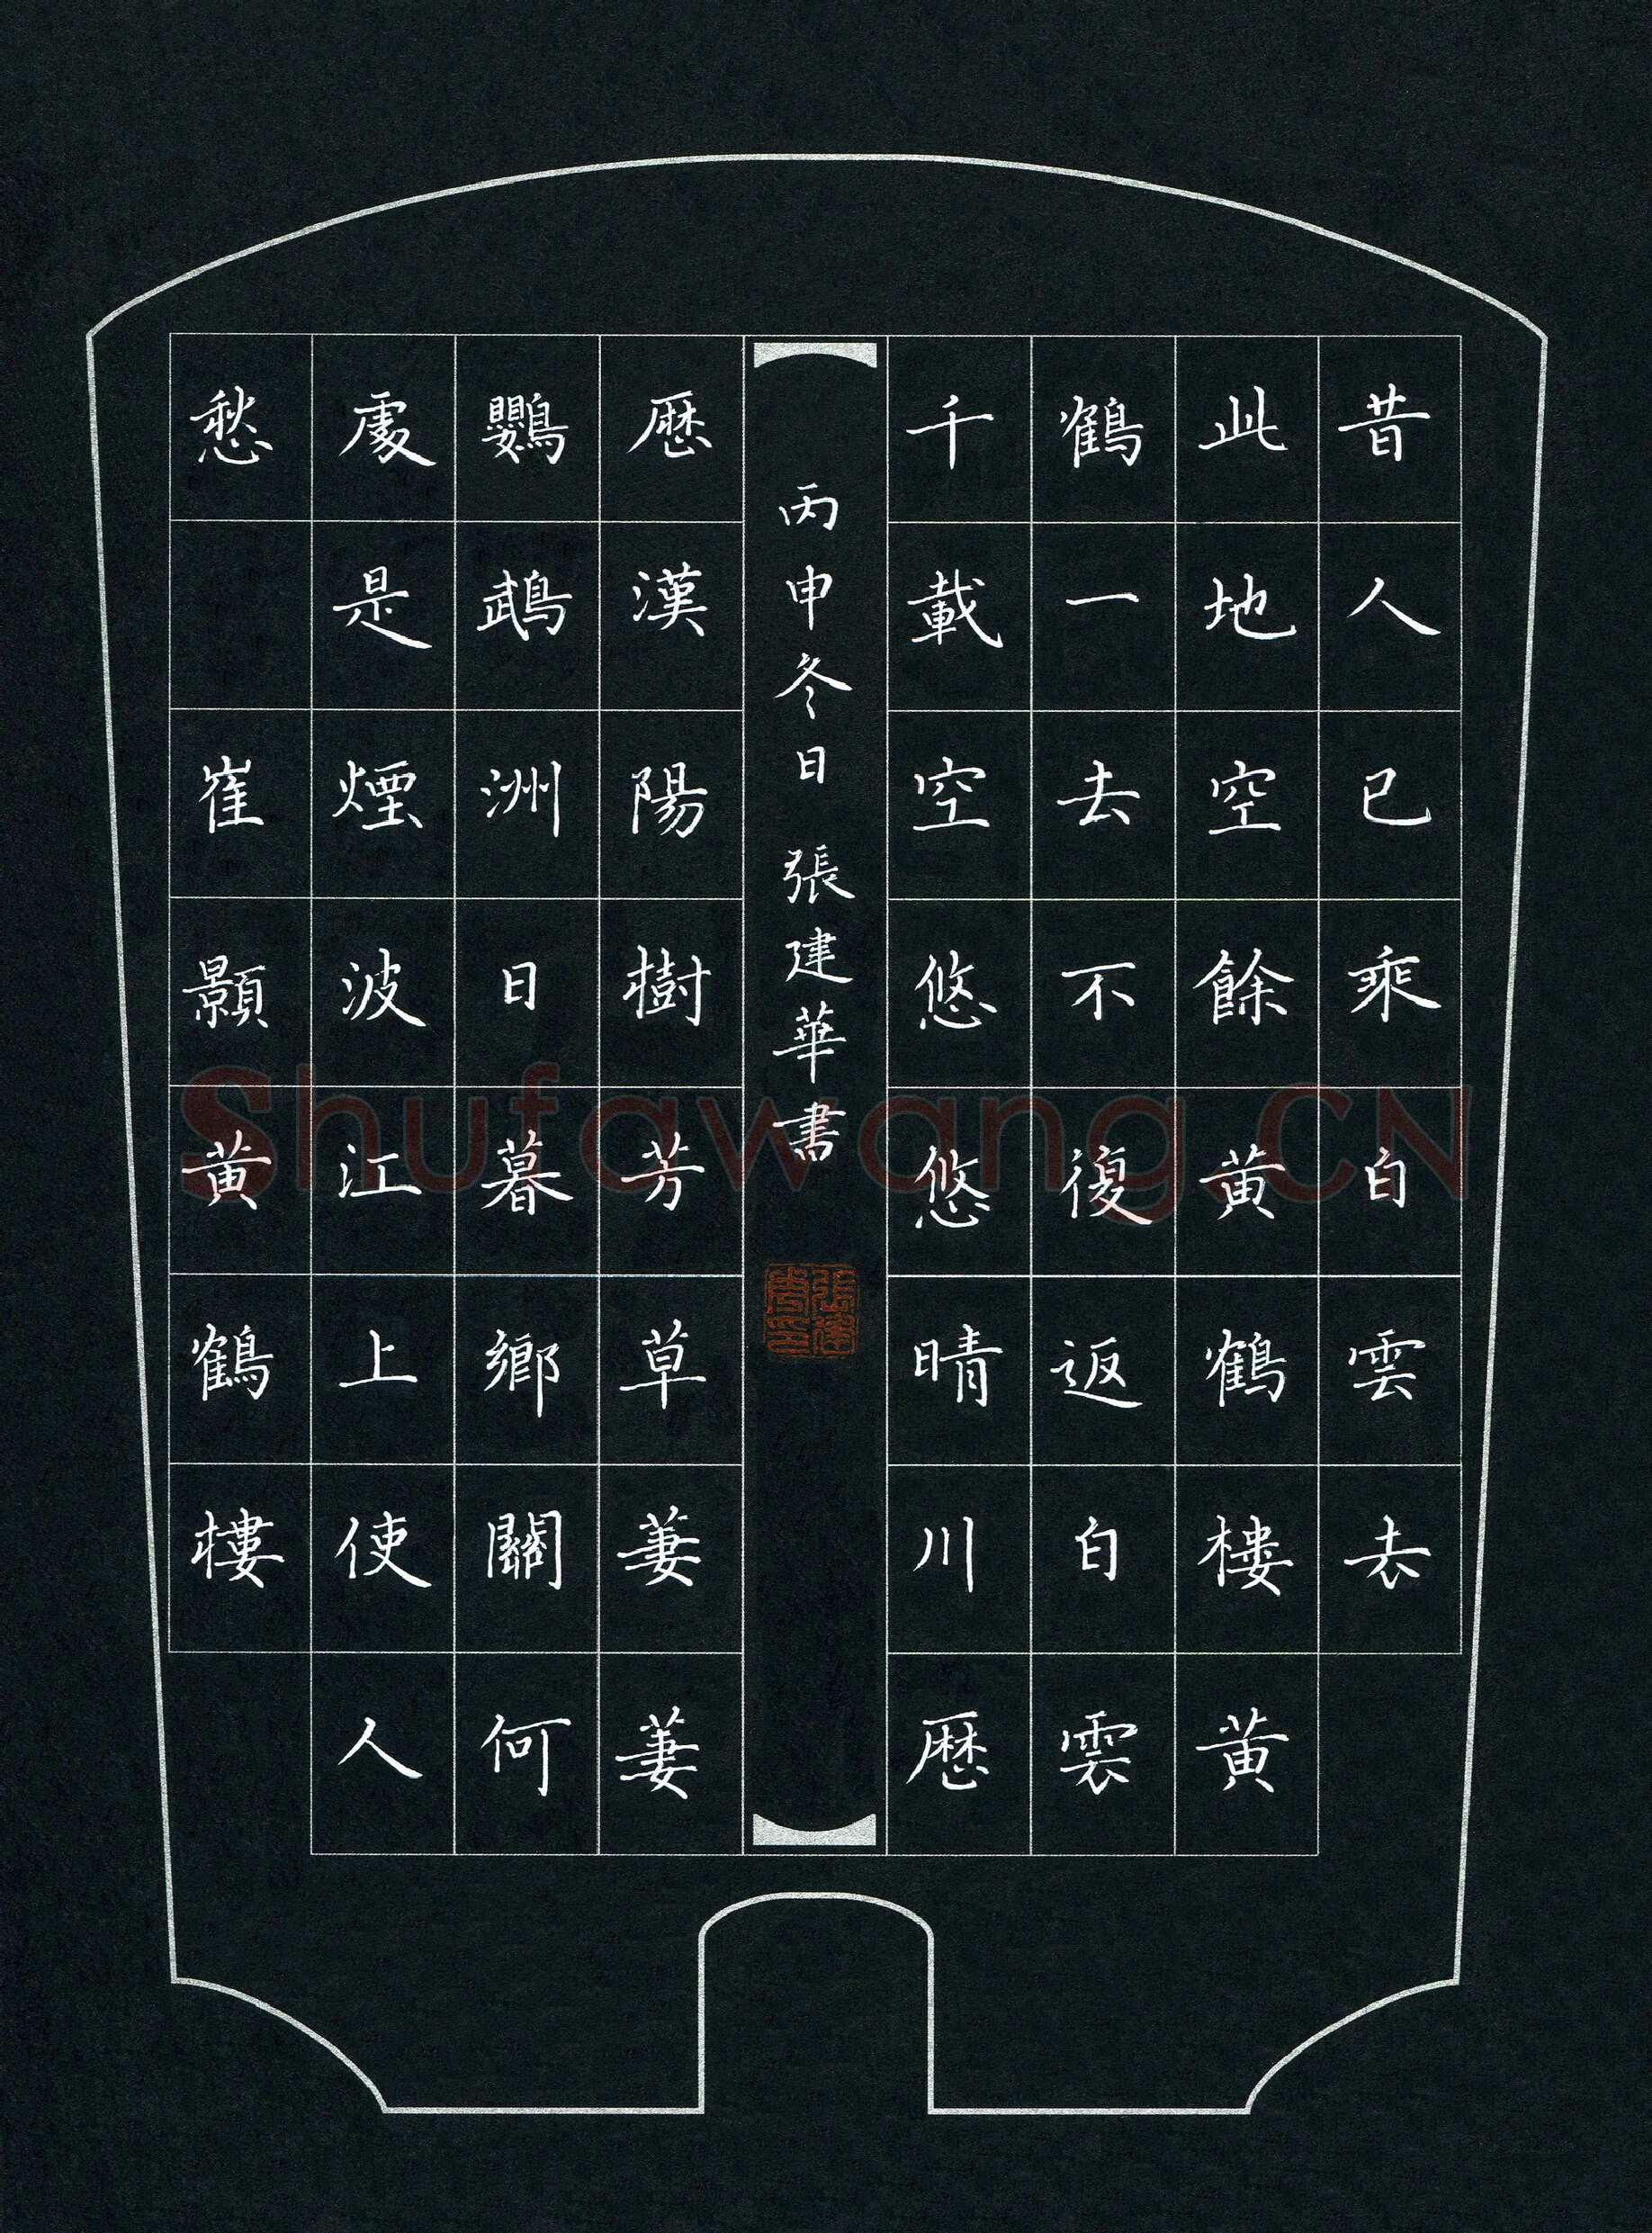 昔人已乘白雲去
此地空餘黃鶴樓黃
鶴一去不復返白雲
千載空悠悠晴川歷
歷漢陽樹芳草萋萋
鸚鵡洲日暮鄉關何
處是煙波江上使人
愁 崔顥黃鶴樓
丙申冬日 張建華書
Shufawang.CN